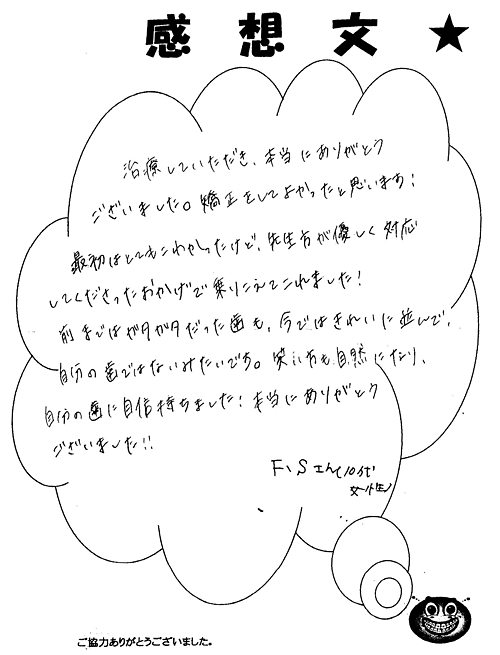 感想文★
治療していただき、本当にありがとう
ございました。矯正をしてよかったと思います!
最初はとてもこわかったけど、先生方が優しく対応
してくださったおかげで乗りこえてこれました!
前まではガタガタだった歯も、今ではきれいに並んで、
自分の歯ではないみたいです。笑い方も自然になり、
自分の歯に自信持ちました!本当にありがとう
ございました!!
F、Sさん(10代
ご協力ありがとうございました。